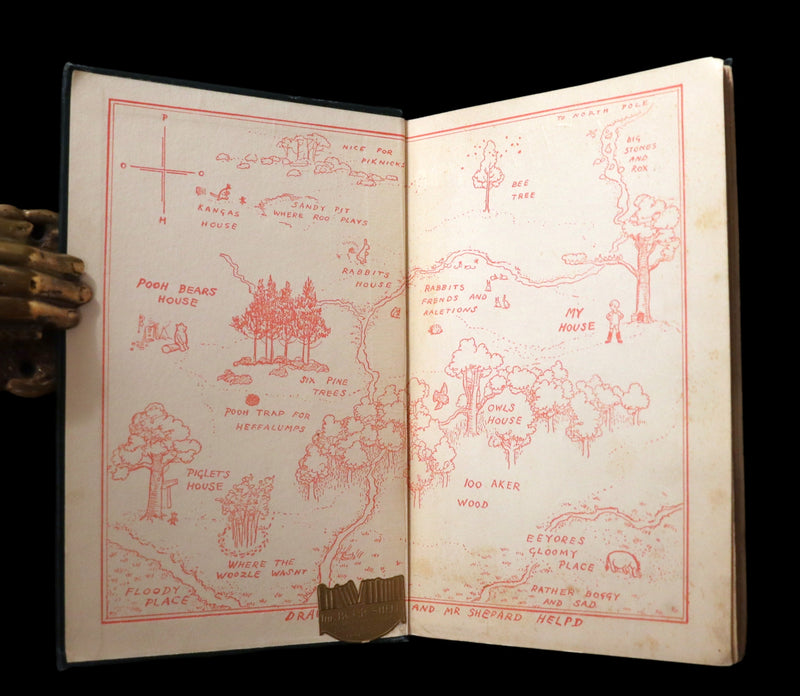 P
O O
H
NICE FOR
PIKNICKS
KANGAS
HOUSE
SANDY PIT
WHERE ROO PLAYS
RABBITS
HOUSE
POOH BEARS
HOUSE
SIX PINE
TREES
POOH TRAP FOR
HEFFALUMPS
PIGLETS
HOUSE
WHERE THE
WOOZLE WASNT
FLOODY
PLACE
TO NORTH POLE
BIG
STONES
AND
ROX
BEE
TREE
RABBITS
FRENDS AND
RALETIONS
MY
HOUSE
OWLS
HOUSE
100 AKER
WOOD
EEYORES
GLOOMY
PLACE
RATHER BOGGY
AND SAD
AND MR SHEPARD HELPD